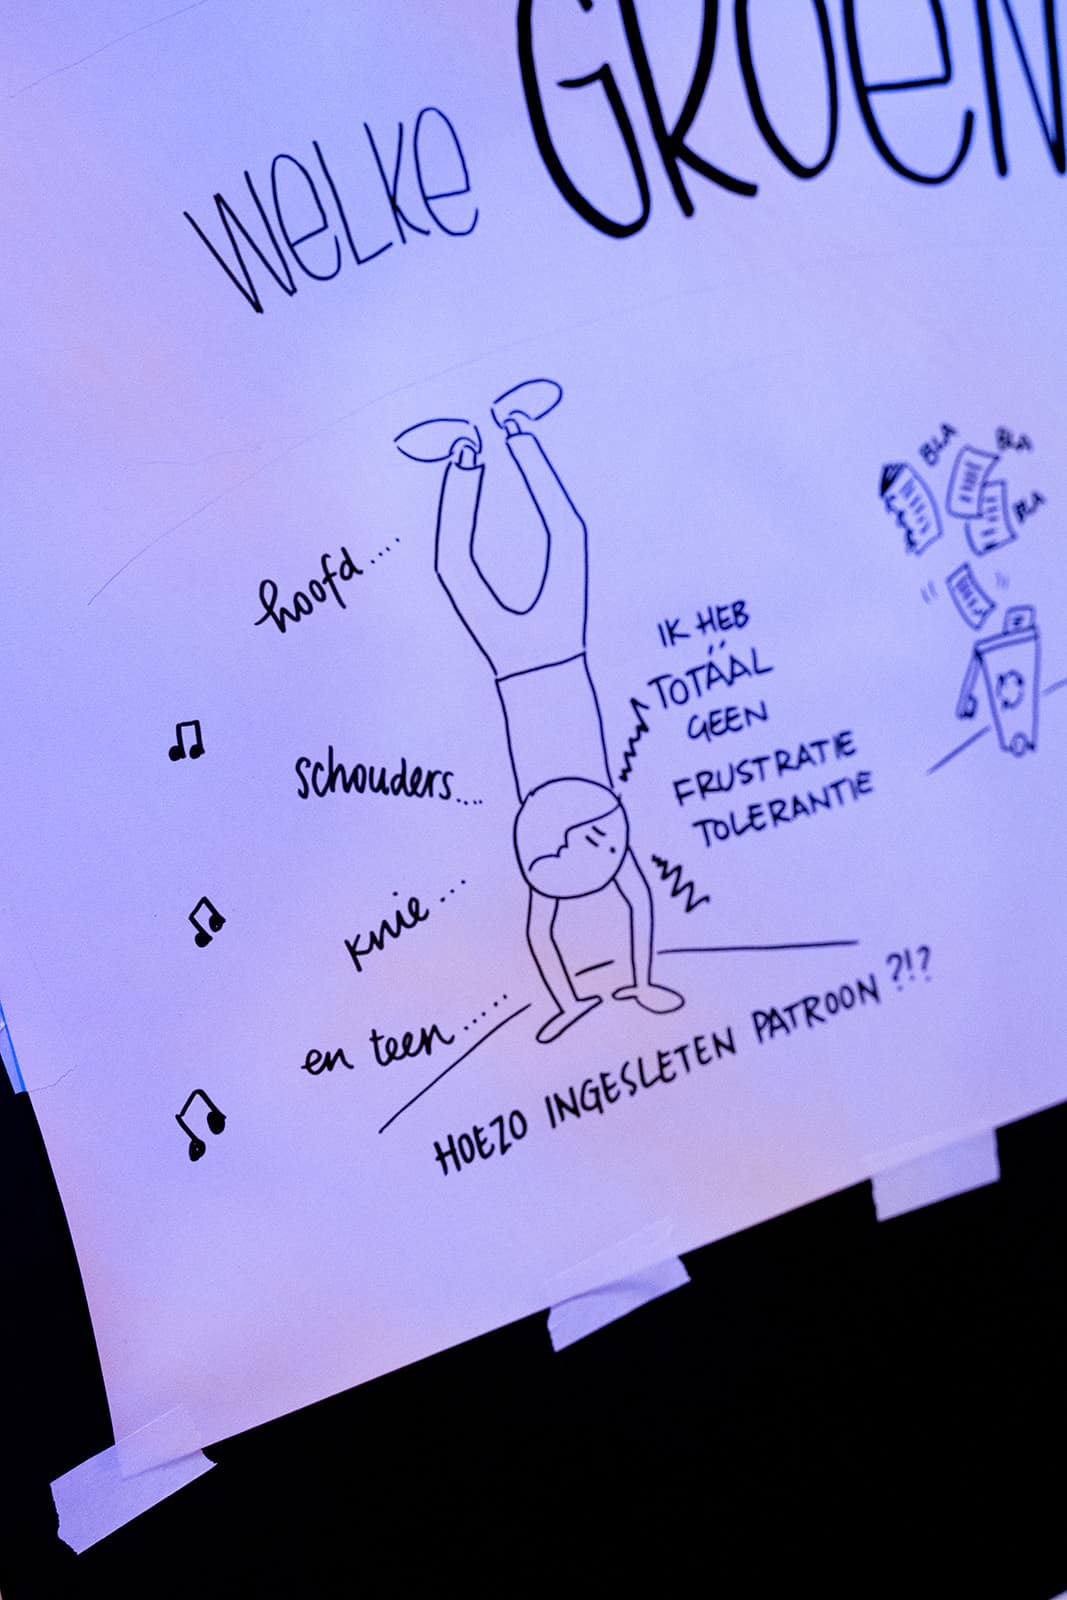 WELKE GROEN
BLA
BLA
BLA
hoofd....
IK HEB
TOTÄAL
GEEN
FRUSTRATIE
TOLERANTIE
schouders....
knie...
en teen.....
HOEZO INGESLETEN PATROON ?!?